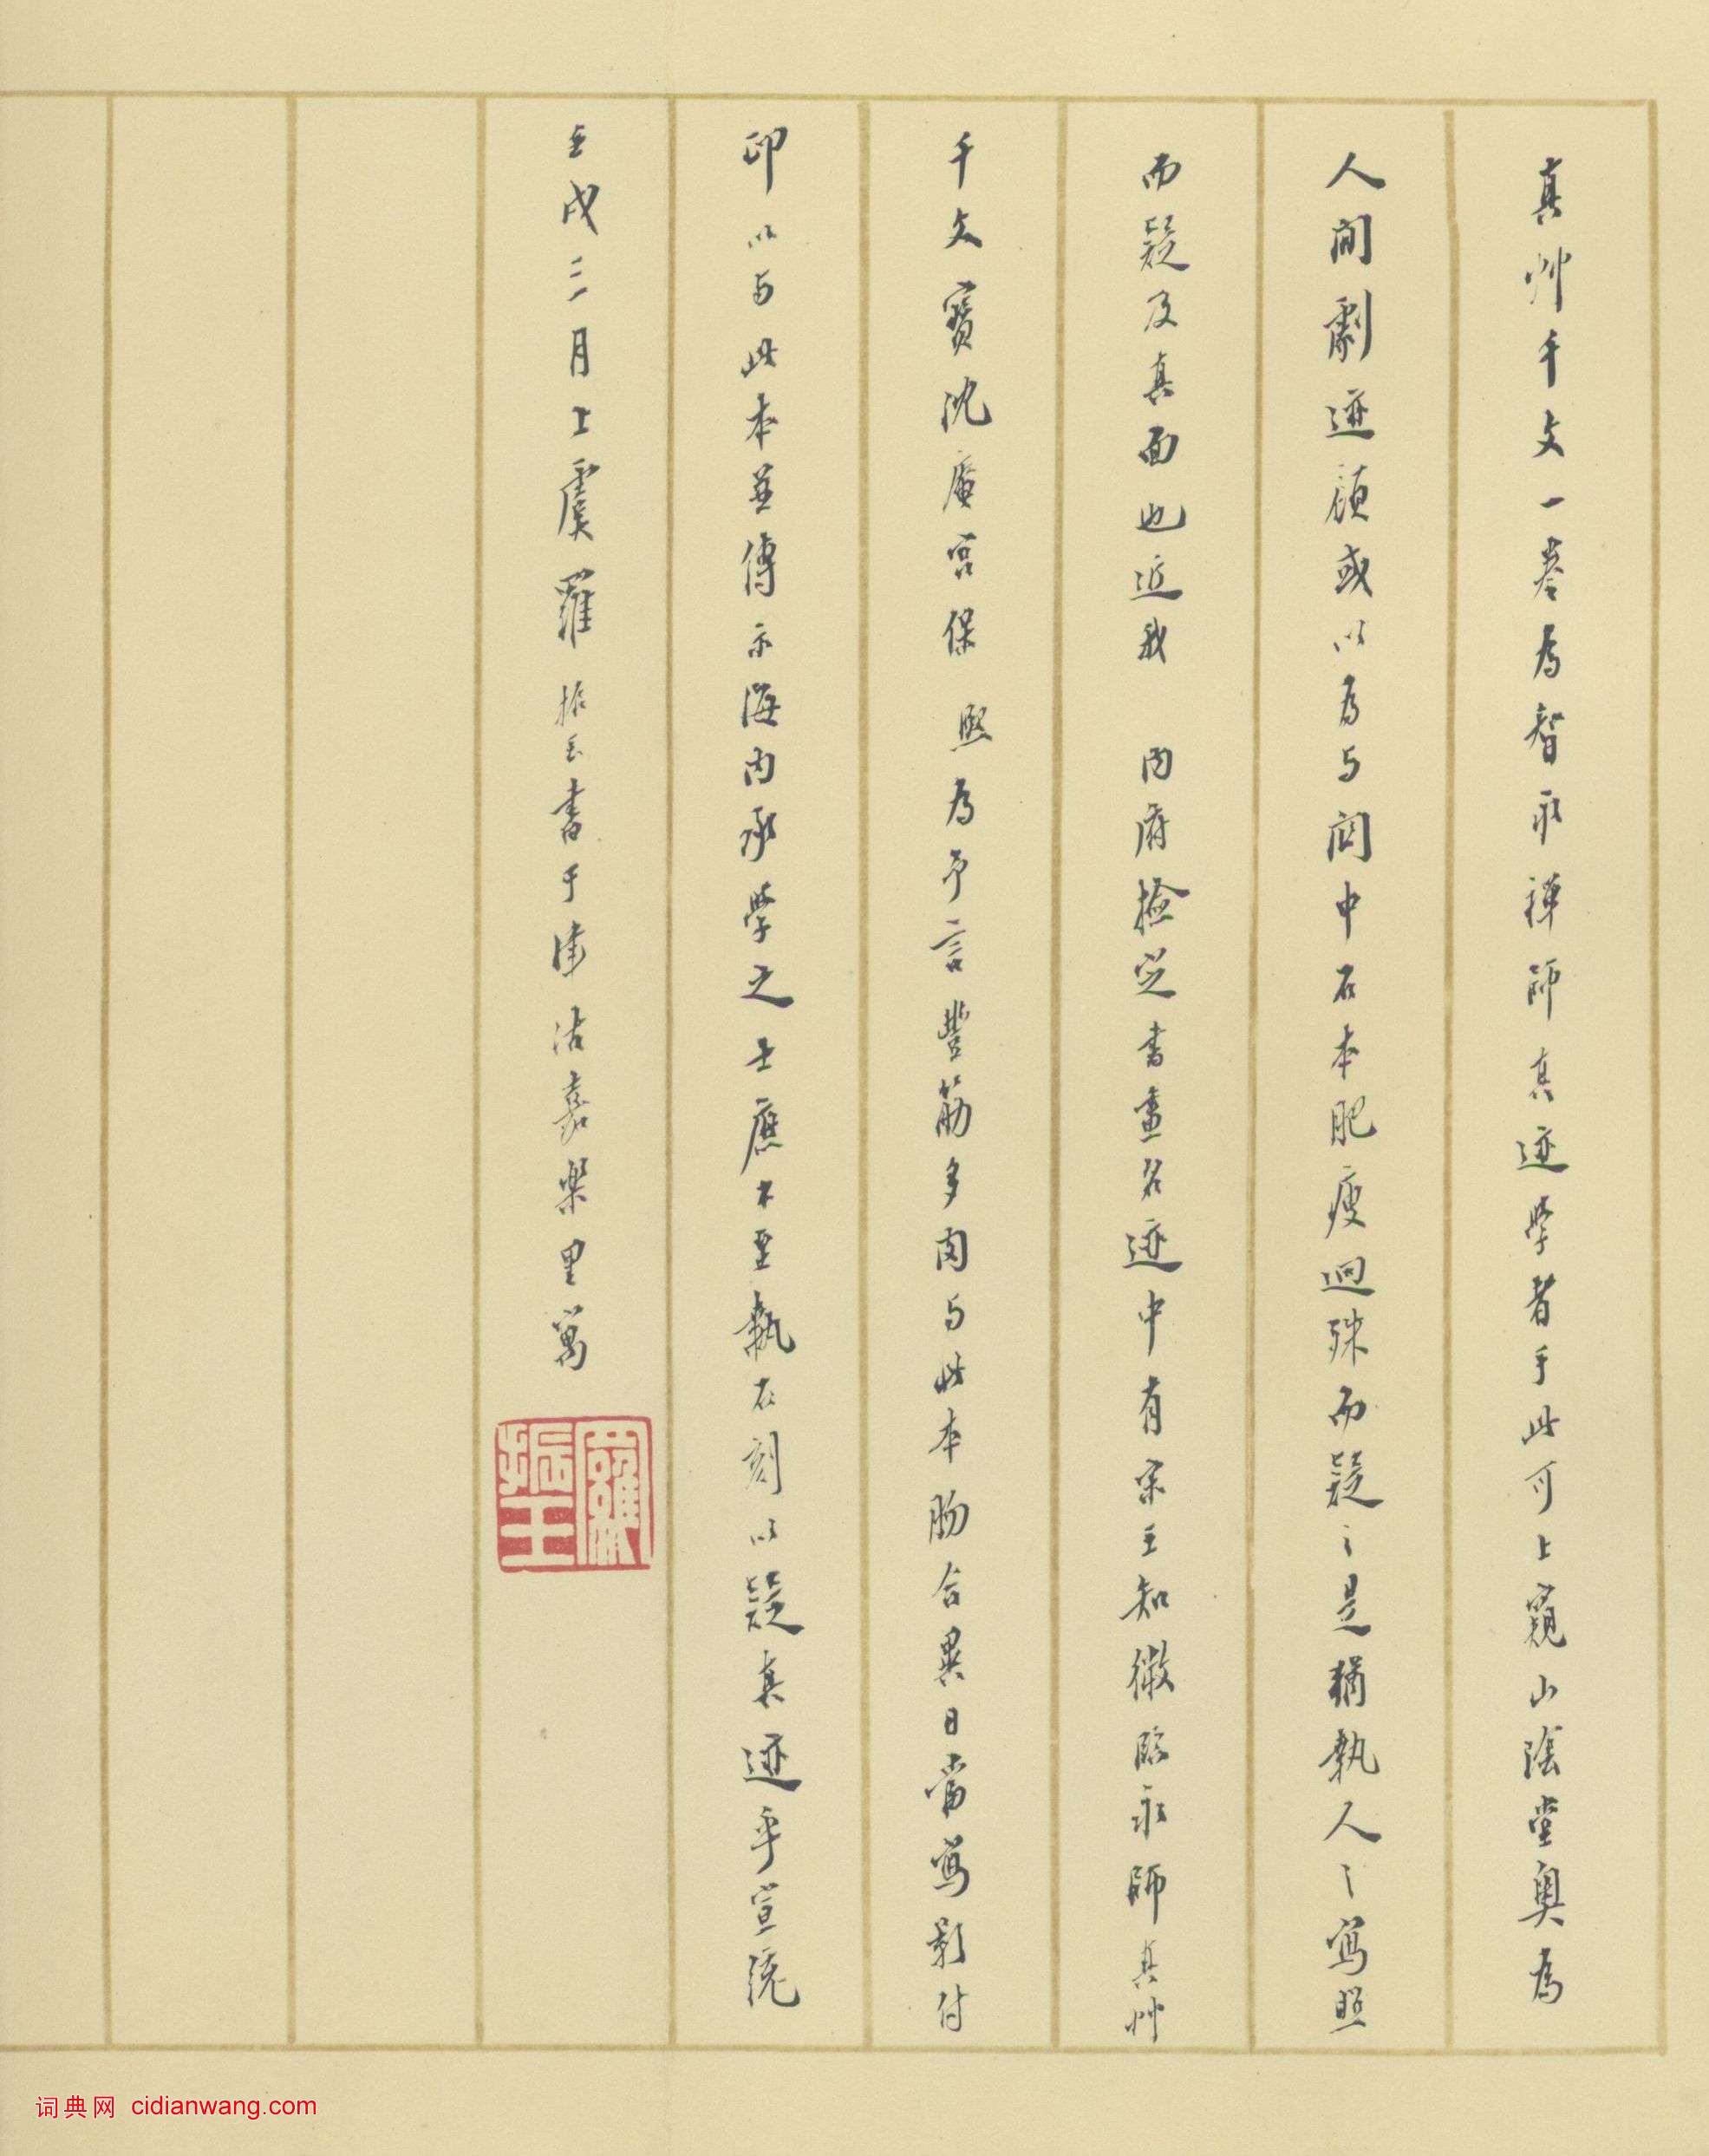 真艸千文一卷為智永禪師真迹學者于此可上窺山陰堂奧為
人間劇迹顧或以為与関中石本肥瘦迥殊而疑之是猶執人之寫照
而疑及真面也近我 内府撿定書畫名迹中有宋王知微臨永師真艸
千文寶沈庵宮保熙為予言豐筋多肉与此本吻合異日當寫影付
印以与此本並傳示海内承學之士應不至執石刻以疑真迹乎宣統
壬戌二月上虞羅振玉書于津沽嘉樂里寓
羅振玉
词典网 cidianwang.com